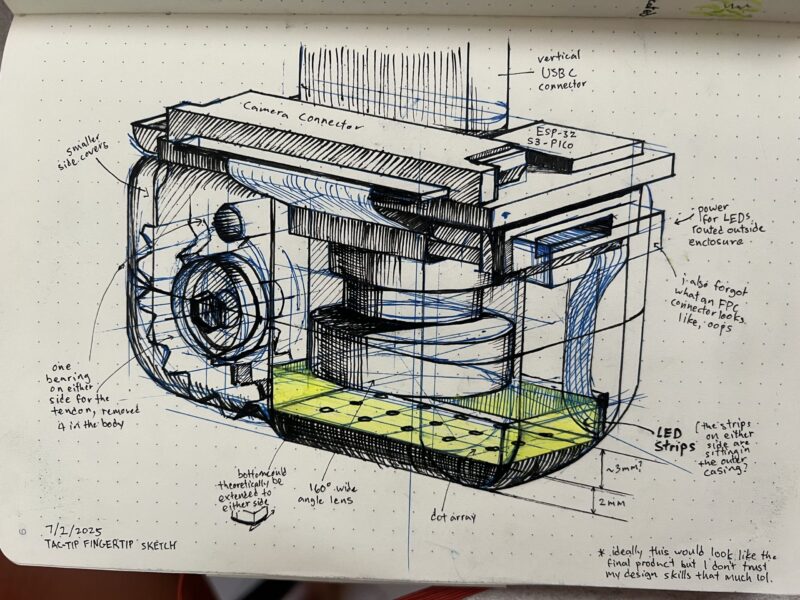 vertical
USB C
connector
Camera connector
ESP-32
S3-PICO
smaller
side covers
power
for LEDs
routed outside
enclosure
i also forgot
what an FPC
connector looks
like, oops
one
bearing
on either
side for the
tendon, removed
it in the body
LED
Strips
(the strips
on either
side are
sitting in
the outer
casing?
~3mm?
2mm
bottom could
theoretically be
extended to
either side
160° wide
angle lens
dot array
7/2/2025
TAC-TIP FINGERTIP SKETCH
* ideally this would look like the
final product but I don't trust
my design skills that much lol.